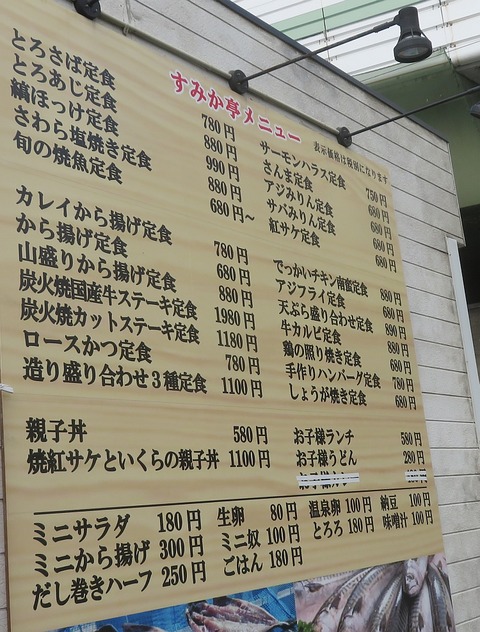 すみか亭メニュー
表示価格は税別になります
とろさば定食 780円
とろあじ定食 880円
縞ほっけ定食 990円
さわら塩焼き定食 880円
旬の焼魚定食 680円~
カレイから揚げ定食 780円
から揚げ定食 680円
山盛りから揚げ定食 880円
炭火焼国産牛ステーキ定食 1980円
炭火焼カットステーキ定食 1180円
ロースかつ定食 780円
造り盛り合わせ3種定食 1100円
サーモンハラス定食 750円
さんま定食 680円
アジみりん定食 680円
サバみりん定食 680円
紅サケ定食 680円
でっかいチキン南蛮定食 880円
アジフライ定食 680円
天ぷら盛り合わせ定食 890円
牛カルビ定食 880円
鶏の照り焼き定食 680円
手作りハンバーグ定食 780円
しょうが焼き定食 680円
親子丼 580円
焼紅サケといくらの親子丼 1100円
お子様ランチ 580円
お子様うどん 280円
ミニサラダ 180円 生卵 80円 温泉卵 100円 納豆 100円
ミニから揚げ 300円 ミニ奴 100円 とろろ 180円 味噌汁 100円
だし巻きハーフ 250円 ごはん 180円